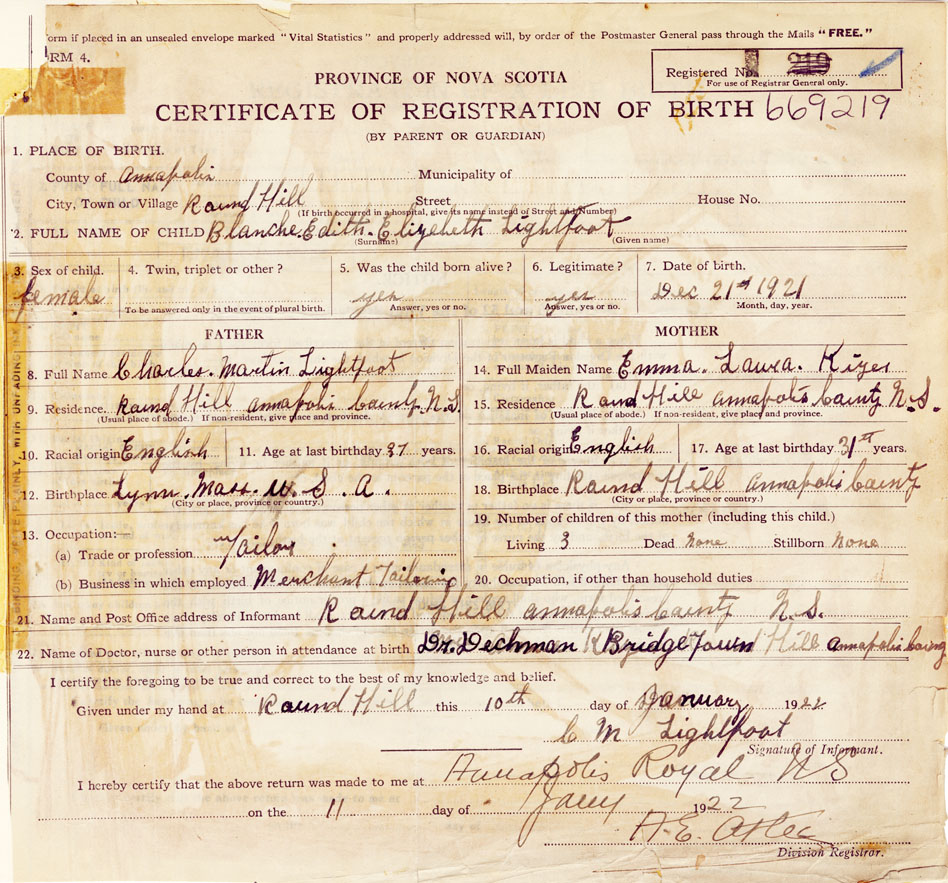 orm if placed in an unsealed envelope marked "Vital Statistics" and properly addressed will, by order of the Postmaster General pass through the Mails "FREE."
RM 4.
Registered No. 219
For use of Registrar General only.
PROVINCE OF NOVA SCOTIA
CERTIFICATE OF REGISTRATION OF BIRTH 669219
(BY PARENT OR GUARDIAN)
1. PLACE OF BIRTH.
County of Annapolis Municipality of
City, Town or Village Raund Hill Street House No.
(If birth occurred in a hospital, give its name instead of Street and Number)
2. FULL NAME OF CHILD Blanche. Edith. Elizebeth Lightfoot
(Surname) (Given name)
3. Sex of child. 4. Twin, triplet or other? 5. Was the child born alive? 6. Legitimate? 7. Date of birth.
female yes yes Dec 21st 1921
To be answered only in the event of plural birth. Answer, yes or no. Answer, yes or no. Month, day, year.
FATHER MOTHER
8. Full Name Charles. Martin Lightfoot
14. Full Maiden Name Emma. Laura.
9. Residence. Raund Hill annapolis Caunty. N.S.
15. Residence Raund Hill annapolis Caunty N.S.
(Usual place of abode.) If non-resident, give place and province.
(Usual place of abode.) If non-resident, give place and province.
10. Racial origin English 11. Age at last birthday 37 years.
16. Racial origin English 17. Age at last birthday 31st years.
12. Birthplace Lynn. Mass. U. S. A.
(City or place, province or country.)
18. Birthplace Raund Hill annapolis Caunty
(City or place, province or country.)
13. Occupation:—
19. Number of children of this mother (including this child.)
(a) Trade or profession Tailor
Living 3 Dead None Stillborn None
(b) Business in which employed Merchant Tailoring
20. Occupation, if other than household duties
21. Name and Post Office address of Informant Raund Hill annapolis Caunty N.S.
22. Name of Doctor, nurse or other person in attendance at birth Dr. Dechman Bridge Town Hill annapolis Caunty
I certify the foregoing to be true and correct to the best of my knowledge and belief.
Given under my hand at Raund Hill this 10th day of January 1922
C M Lightfoot
Signature of Informant.
I hereby certify that the above return was made to me at Annapolis Royal NS
on the 11 day of Jany 1922
A. E.
Division Registrar.